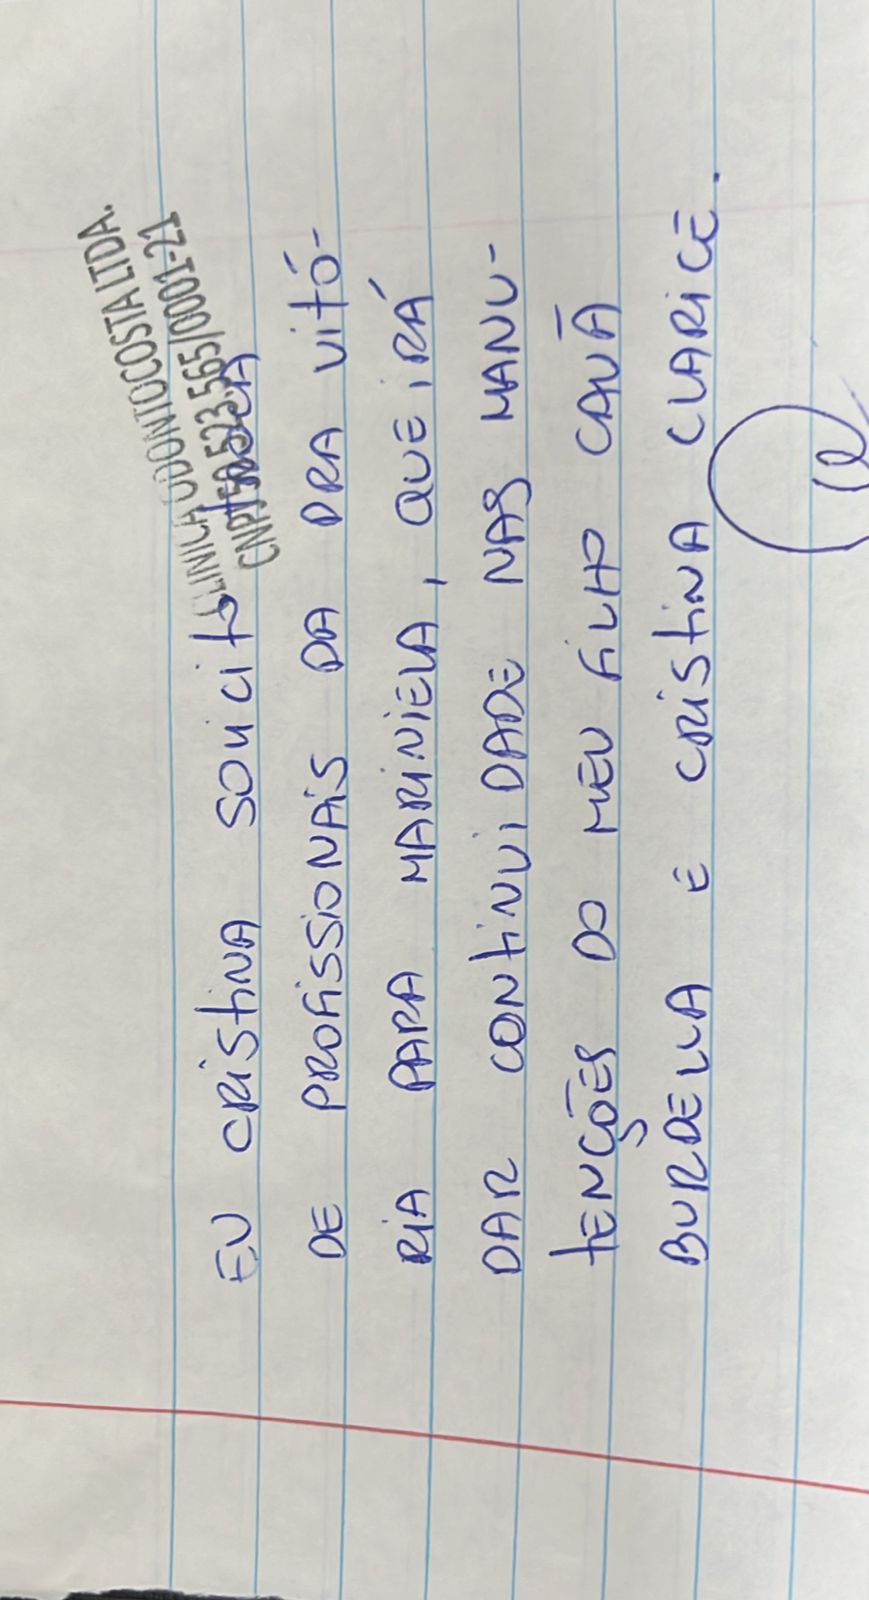 LINICA ODONTOCOSTA LTDA.
CNPJ 50.523.565/0001-21
EU CRISTINA SOLICITO TROCA
DE PROFISSIONAIS DA DRA VITÓ-
RIA PARA MARINIELA, QUE IRÁ
DAR CONTINUIDADE NAS MANU-
TENÇÕES DO MEU FILHO CAUÃ
BURDELLA E CRISTINA CLARICE.